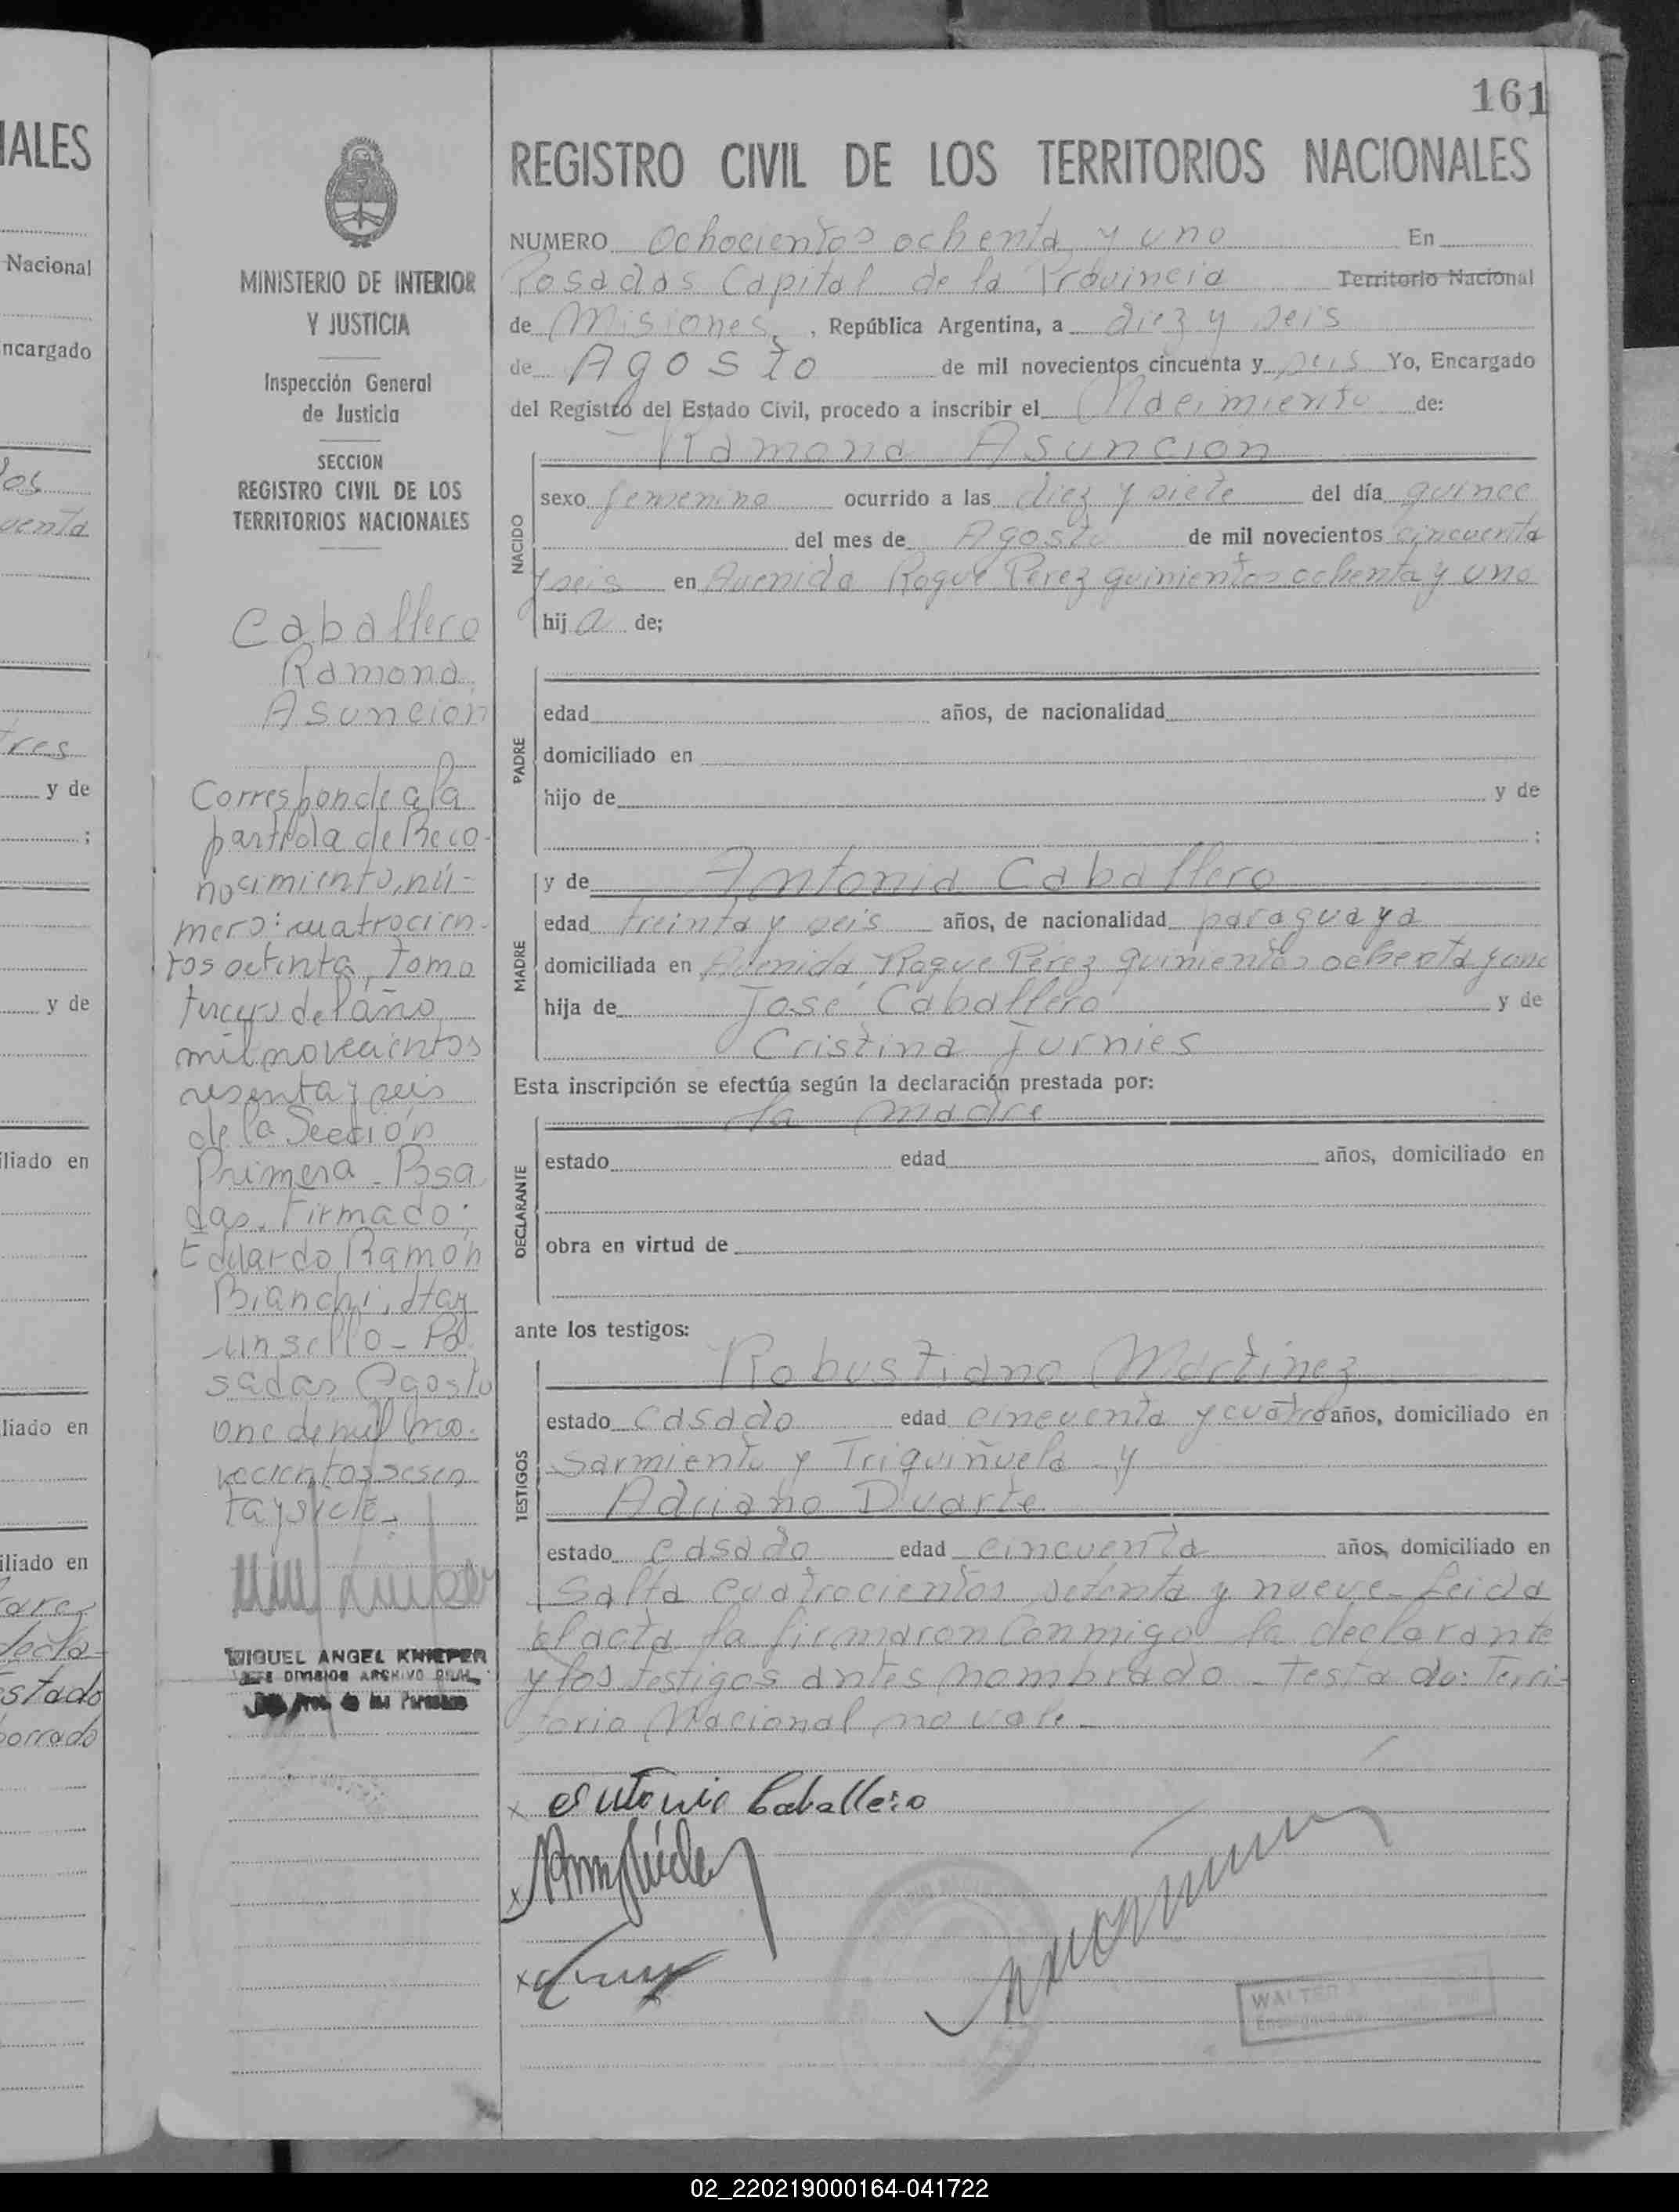 161
IALES
Nacional
ncargado
y de
;
y de
iliado en
liado en
iliado en
stado
borrado
MINISTERIO DE INTERIOR
Y JUSTICIA
Inspección General
de Justicia
SECCION
REGISTRO CIVIL DE LOS
TERRITORIOS NACIONALES
Caballero
Ramona
Asuncion
Corresponde a la
partida de Reco-
nocimiento, nú-
mero: cuatrocien-
tos setenta, Tomo
tercero del año
mil novecientos
sesenta y seis
de la Sección
Primera - Posa
das. Firmado:
Eduardo Ramón
Bianchi. Hay
un sello - Po
sadas Agosto
once de mil no-
vecientos sesen
ta y siete.
MIGUEL ANGEL KNIEPER
JEFE DIVISION ARCHIVO GRAL.
Prov. de las Personas
REGISTRO CIVIL DE LOS TERRITORIOS NACIONALES
NUMERO Ochocientos ochenta y uno En
Posadas Capital de la Provincia Territorio Nacional
de Misiones, República Argentina, a diez y seis
de Agosto de mil novecientos cincuenta y seis Yo, Encargado
del Registro del Estado Civil, procedo a inscribir el Nacimiento de:
Ramona Asuncion
NACIDO
sexo femenino ocurrido a las diez y siete del día quince
del mes de Agosto de mil novecientos cincuenta
y seis en Avenida Roque Perez quinientos ochenta y uno
hija de;
PADRE
edad años, de nacionalidad
domiciliado en
hijo de y de
;
MADRE
y de Antonia Caballero
edad treinta y seis años, de nacionalidad paraguaya
domiciliada en Avenida Roque Pérez quinientos ochenta y uno
hija de José Caballero y de
Cristina Furnies
Esta inscripción se efectúa según la declaración prestada por:
la madre
DECLARANTE
estado edad años, domiciliado en
obra en virtud de
ante los testigos:
TESTIGOS
Robustiano Martinez
estado casado edad cincuenta y cuatro años, domiciliado en
Sarmiento y Triquiñuela y
Adriano Duarte
estado casado edad cincuenta años, domiciliado en
Salta cuatrocientos setenta y nueve - Leida
el acta la firmaron conmigo la declarante
y los testigos antes nombrado - Testa do: Terri-
torio Nacional no vale -
x Antonia Caballero
x
x
WALTER
02_220219000164-041722